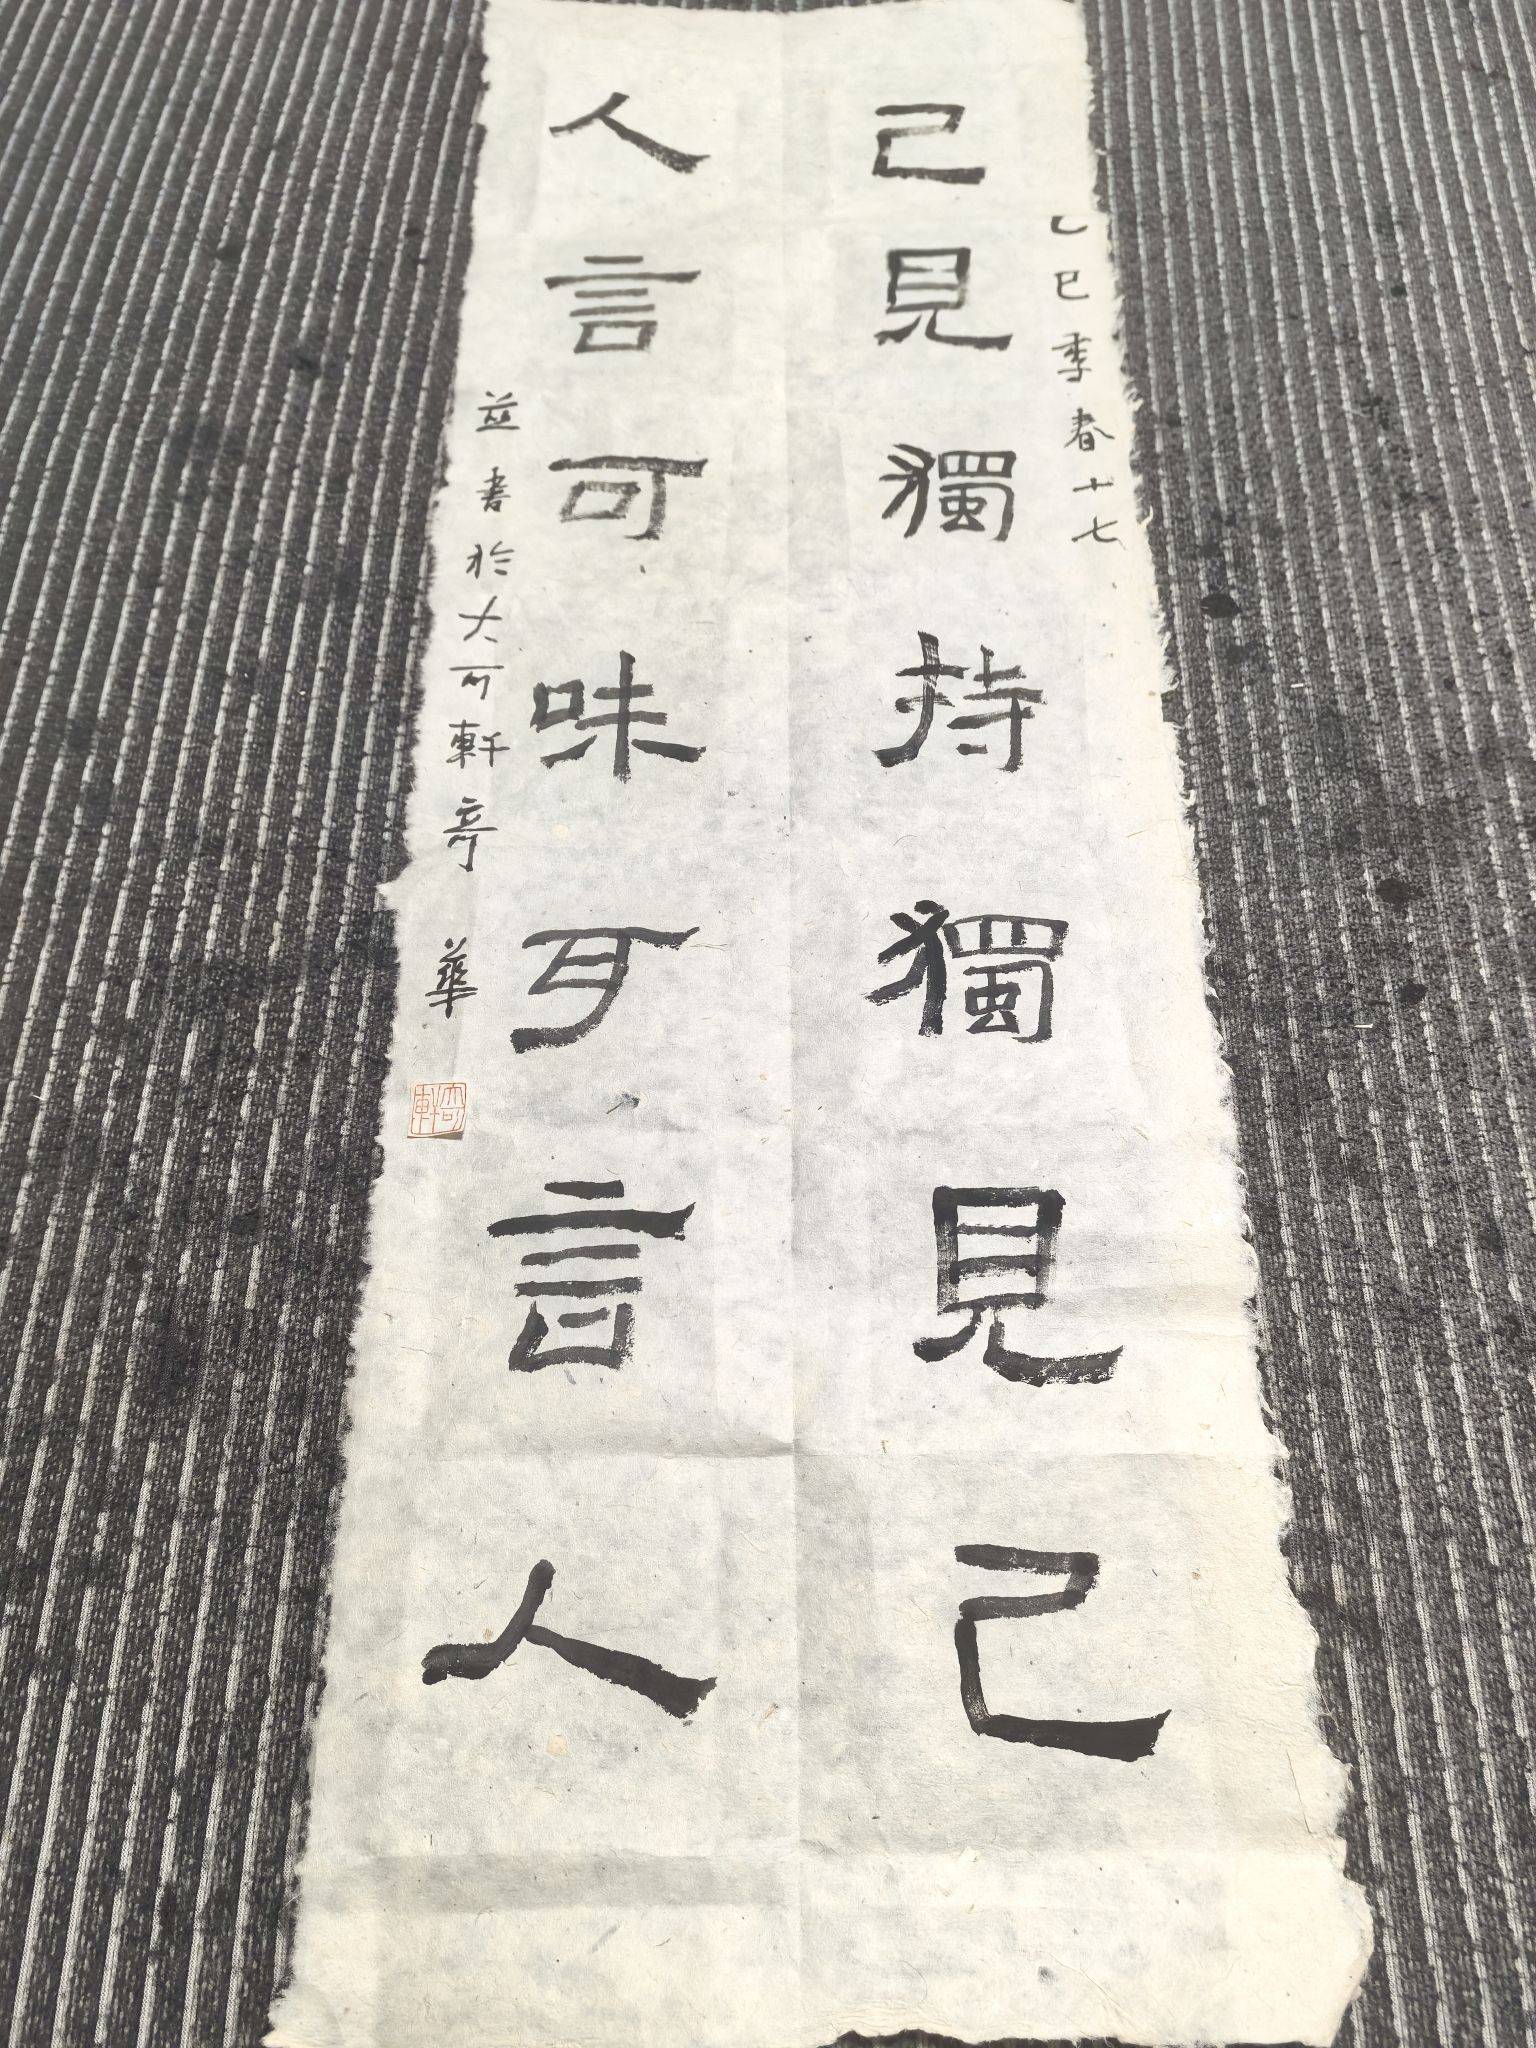 乙巳季春十七
己見獨持獨見己
人言可味可言人
並書於大可軒奇華
奇軒